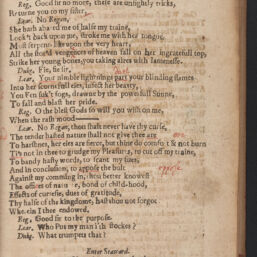 Reg. Good sir no more, these are unsightly tricks,
Returne you to my sister.
Lear. No Regan,
She hath abated me of halfe my traine,
Lookt backe upon me, stroke me with her tongue,
Most serpent-like upon the very heart,
All the stor'd vengeances of heaven fall on her ingratefull top,
Strike her young bones, you taking aires with lamenesse.
Duke. Fie, fie sir.
Lear. Your nimble lightnings dart your blinding flames
Into her scornfull eies, infect her beauty,
You Fen suk't fogs, drawne by the powrfull Sunne,
To fall and blast her pride.
Reg. O the blest Gods so will you wish on me,
When the rash mood———
Lear. No Regan, thou shalt never have my curse,
The tender hested nature shall not give thee ore
To harshnes, her eies are fierce, but thine do comfort & not burn
Tis not in thee to grudge my pleasure, to cut off my traine,
To bandy hasty words, to scant my sizes,
And in conclusion, to oppose the bolt
Against my comming in, thou better knowest
The offices of nature, bond of child-hood,
Effects of curtesie, dues of gratitude,
Thy halfe of the kingdome, hast thou not forgot
Wherein I thee endowed.
Reg. Good sir to the purpose.
Lear. Who put my man i'th stockes?
Duke. What trumpet that?
Enter Steward.